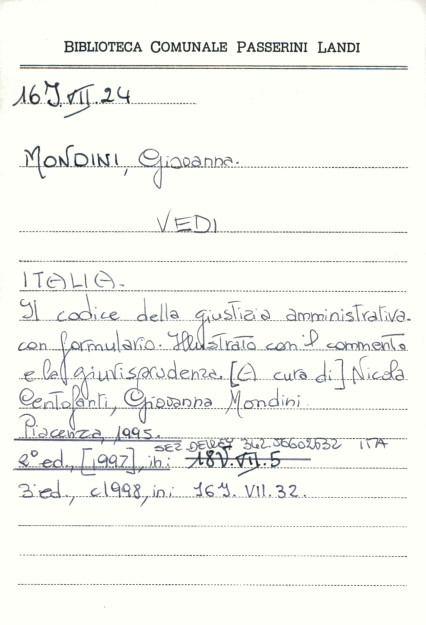 BIBLIOTECA COMUNALE PASSERINI LANDI
16J.VII.24
MONDINI, Giovanna.
VEDI
ITALIA.
Il codice della giustizia amministrativa.
con formulario. Illustrato con il commento
e la giurisprudenza. [A cura di] Nicola
Centofanti, Giovanna Mondini.
Piacenza, 1995.
SEZ DEWEY 342.45602632 ITA
2°ed., [1997], in: 18V.VII.5
3ed., c1998, in: 16J. VII. 32.